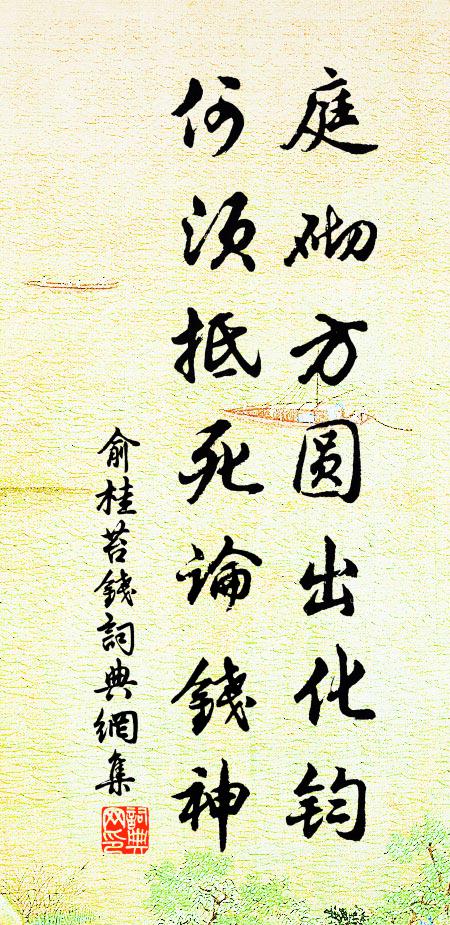 庭砌方圆出化钧
何须抵死论錢神
俞桂苔錢詞典網集
詞典网印